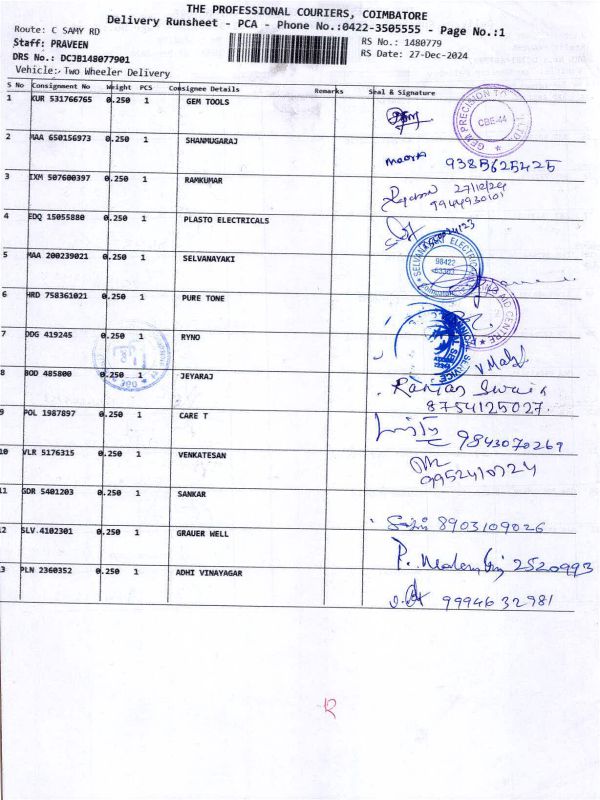 THE PROFESSIONAL COURIERS, COIMBATORE
Delivery Runsheet - PCA - Phone No.:0422-3505555 - Page No.:1
Route: C SAMY RD
Staff: PRAVEEN
RS No.: 1480779
DRS No.: DCJB148077901
RS Date: 27-Dec-2024
Vehicle: Two Wheeler Delivery
S No Consignment No Weight PCS Consignee Details Remarks Seal & Signature
1 KUR 531766765 0.250 1 GEM TOOLS
GEM PRECISION
CBE-44
2 MAA 650156973 0.250 1 SHANMUGARAJ
9385625425
3 IXM 507600397 0.250 1 RAMKUMAR
27/12/24
9944930101
4 EDQ 15055880 0.250 1 PLASTO ELECTRICALS
5 MAA 200239021 0.250 1 SELVANAYAKI
98422
6 HRD 758361021 0.250 1 PURE TONE
AID CENTRE
7 DDG 419245 0.250 1 RYNO
8 BOD 485800 0.250 1 JEYARAJ
Ranjan Swain
8754125027.
9 POL 1987897 0.250 1 CARE T
9843070269
10 VLR 5176315 0.250 1 VENKATESAN
9952410724
11 GDR 5401203 0.250 1 SANKAR
8903109026
12 SLV.4102301 0.250 1 GRAUER WELL
2520993
3 PLN 2360352 0.250 1 ADHI VINAYAGAR
9994632981
12